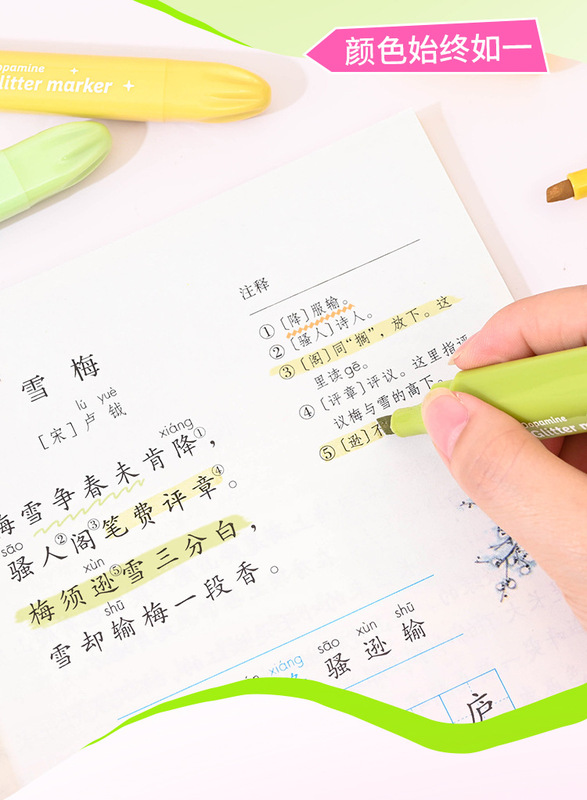 颜色始终如一
Dopamine
Glitter marker
注释
①[降]服输。
②[骚人]诗人。
③[阁]同“搁”，放下。这
里读gē。
④[评章]评议。这里指评
议梅与雪的高下。
⑤[逊]不
雪梅
lú yuè
[宋]卢钺
xiáng
梅雪争春未肯降①，
sāo
骚人②阁③笔费评章④。
xùn
梅须逊⑤雪三分白，
shū
雪却输梅一段香。
xiáng sāo xùn shū
骚 逊 输
庐
Dopamine
Glitter marker